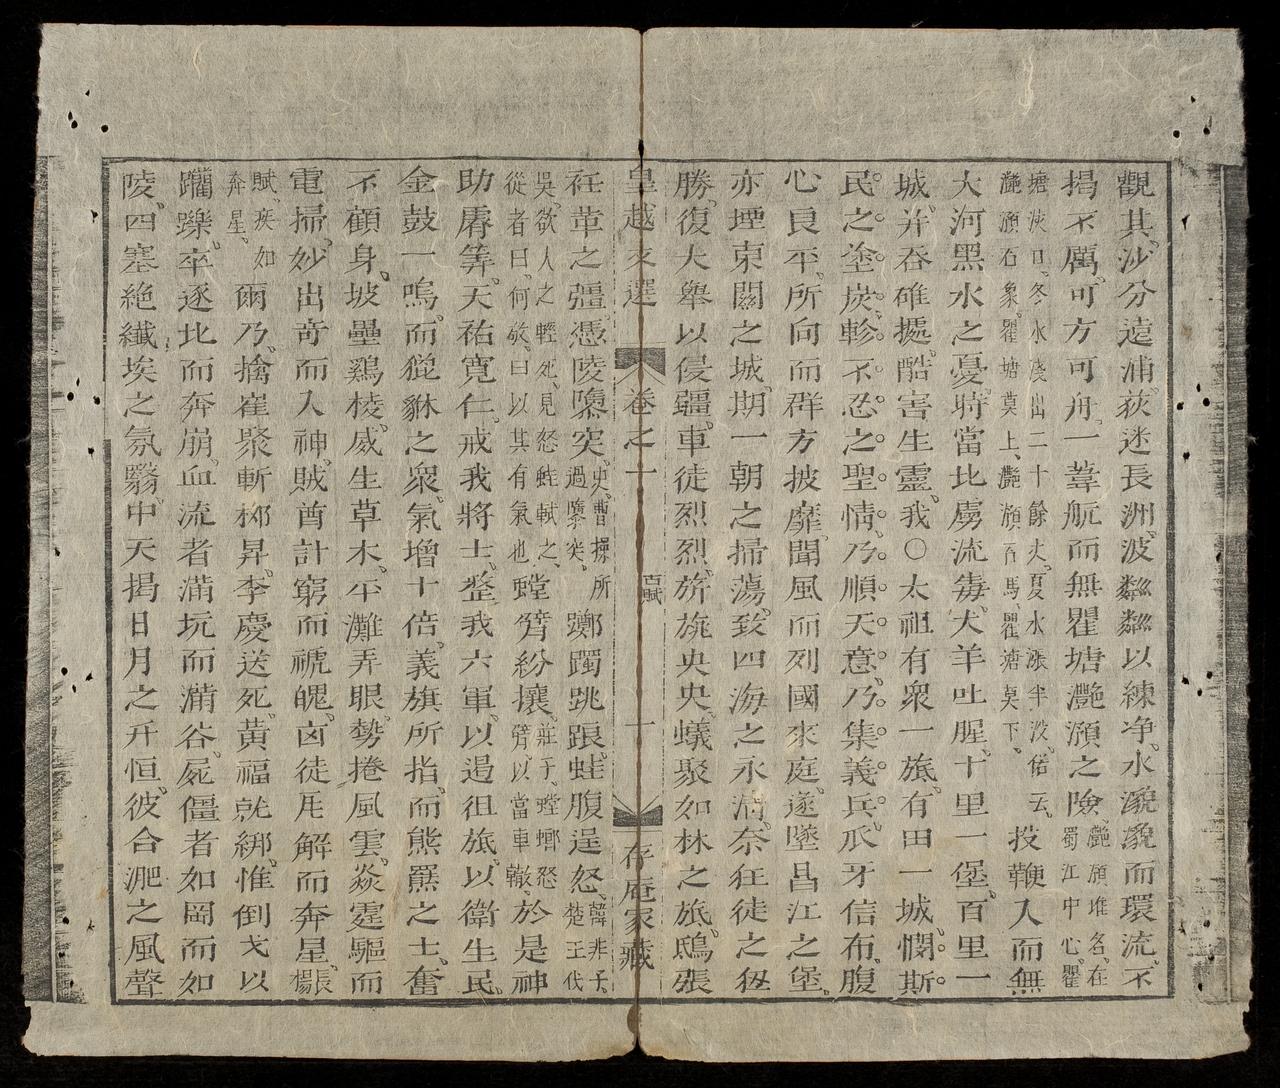 觀其沙分遠浦荻迷長洲波粼粼以練净水潑潑而環流不
揭不厲可方可舟一葦航而無瞿塘灩澦之險灩澦堆名在蜀江中心瞿
塘峽口冬水淺出二十餘丈夏水漲半没俗云灩澦石象瞿塘莫上灩澦石馬瞿塘莫下投鞭入而無
大河黑水之憂時當北虜流毒犬羊吐腥十里一堡百里一
城并吞碓㨿酷害生靈我〇太祖有衆一旅有田一城憫斯
民之塗炭軫不忍之聖情乃順天意乃集義兵爪牙信布腹
心良平所向而群方披靡聞風而列國來庭遂墜昌江之堡
亦堙東關之城期一朝之掃蕩致四海之永清奈狂徒之
勝復大舉以侵疆車徒烈烈旂旐央央蟻聚如林之旅鴟張
皇越文選 卷之一 古賦 十一 存庵家藏
荏葦之彊憑陵隳突史曹操所過隳突躑躅跳踉蛙腹逞怒韓非子楚王代
吳欲人之輕死見怒蛙軾之從者曰何敬曰以其有氣也螳臂紛攘莊子螳螂怒臂以當車轍於是神
助孱筭天祐寬仁戒我將士整我六軍以遏徂旅以衛生民
金鼓一鳴而貔貅之衆氣增十倍義旗所指而熊羆之士奮
不顧身坡壘鷄棱威生草木平灘弄眼勢捲風雲焱霆驅而
電掃妙出奇而入神賊酋計窮而禠魄凶徒瓦解而奔星楊張
賦疾如奔星爾乃擒崔聚斬栁昇李慶送死黃福就綁惟倒戈以
躪躒卒逐北而奔崩血流者滿坑而滿谷屍僵者如岡而如
陵四塞絶纖埃之氛翳中天揭日月之升恒彼合淝之風聲